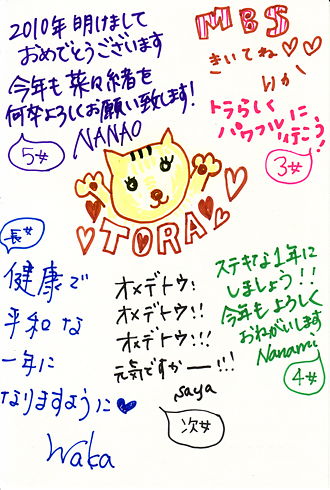 2010年 明けまして
おめでとうございます
今年も菜々緒を
何卒よろしくお願い致します!
NANAO
5女
MBS
きいてね♡♡
りか
トラらしく
パワフルに
行こう!
3女
TORA
長女
健康で
平和な
一年に
なりますように♥
Waka
オメデトウ!
オメデトウ!!
オメデトウ!!!
元気ですかー!!!
Saya
次女
ステキな1年に
しましょう!!
今年もよろしく
おねがいします
Nanami
4女